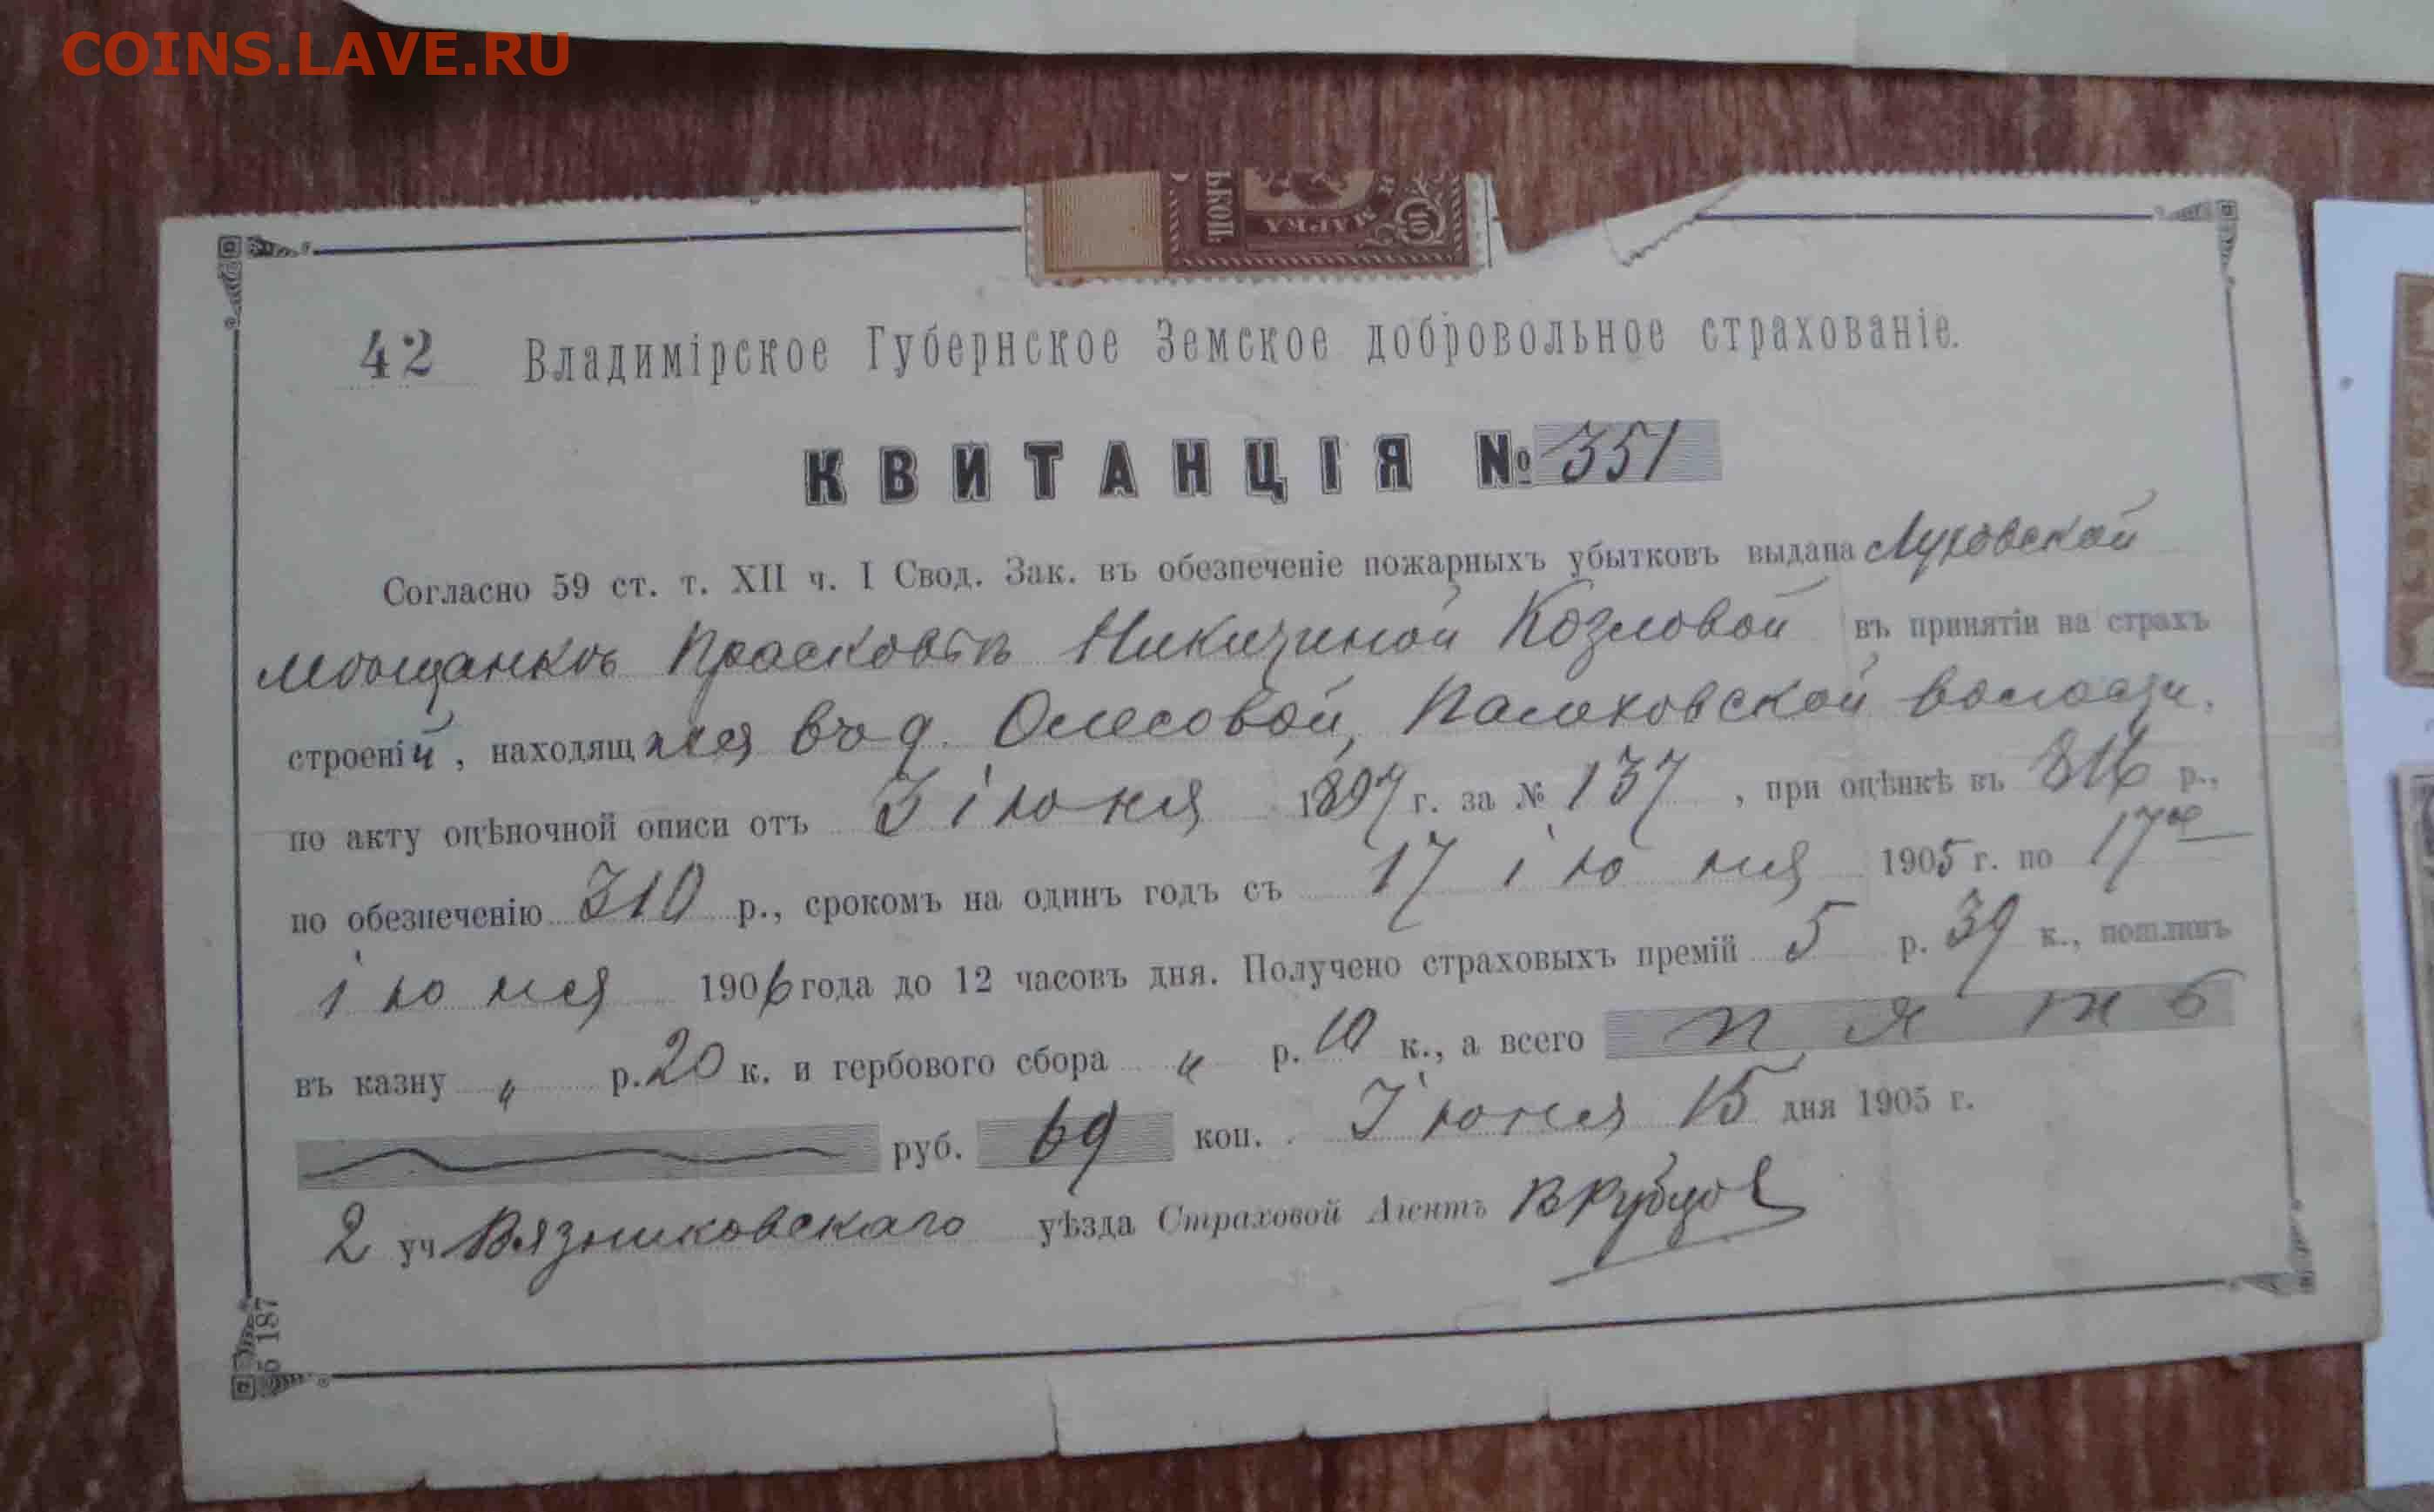 COINS.LAVE.RU
ЬКОП.
МАРКА
10
42 Владимірское Губернское Земское добровольное страхованіе.
КВИТАНЦІЯ № 351
Согласно 59 ст. т. XII ч. I Свод. Зак. въ обезпеченіе пожарныхъ убытковъ выдана Луховской
мѣщанкѣ Прасковьѣ Никитиной Козловой въ принятіи на страхъ
строеній, находящихся въ д. Олесовой, Палеховской волости,
по акту оцѣночной описи отъ 3 іюня 1897 г. за № 137, при оцѣнкѣ въ 816 р.,
по обезпеченію 310 р., срокомъ на одинъ годъ съ 17 іюня 1905 г. по 17ое
іюня 1906 года до 12 часовъ дня. Получено страховыхъ премій 5 р. 39 к., пошлинъ
въ казну „ р. 20 к. и гербового сбора „ р. 10 к., а всего пять
руб. 69 коп. Іюня 15 дня 1905 г.
2 уч Вязниковскаго уѣзда Страховой Агентъ В Рубцов
187